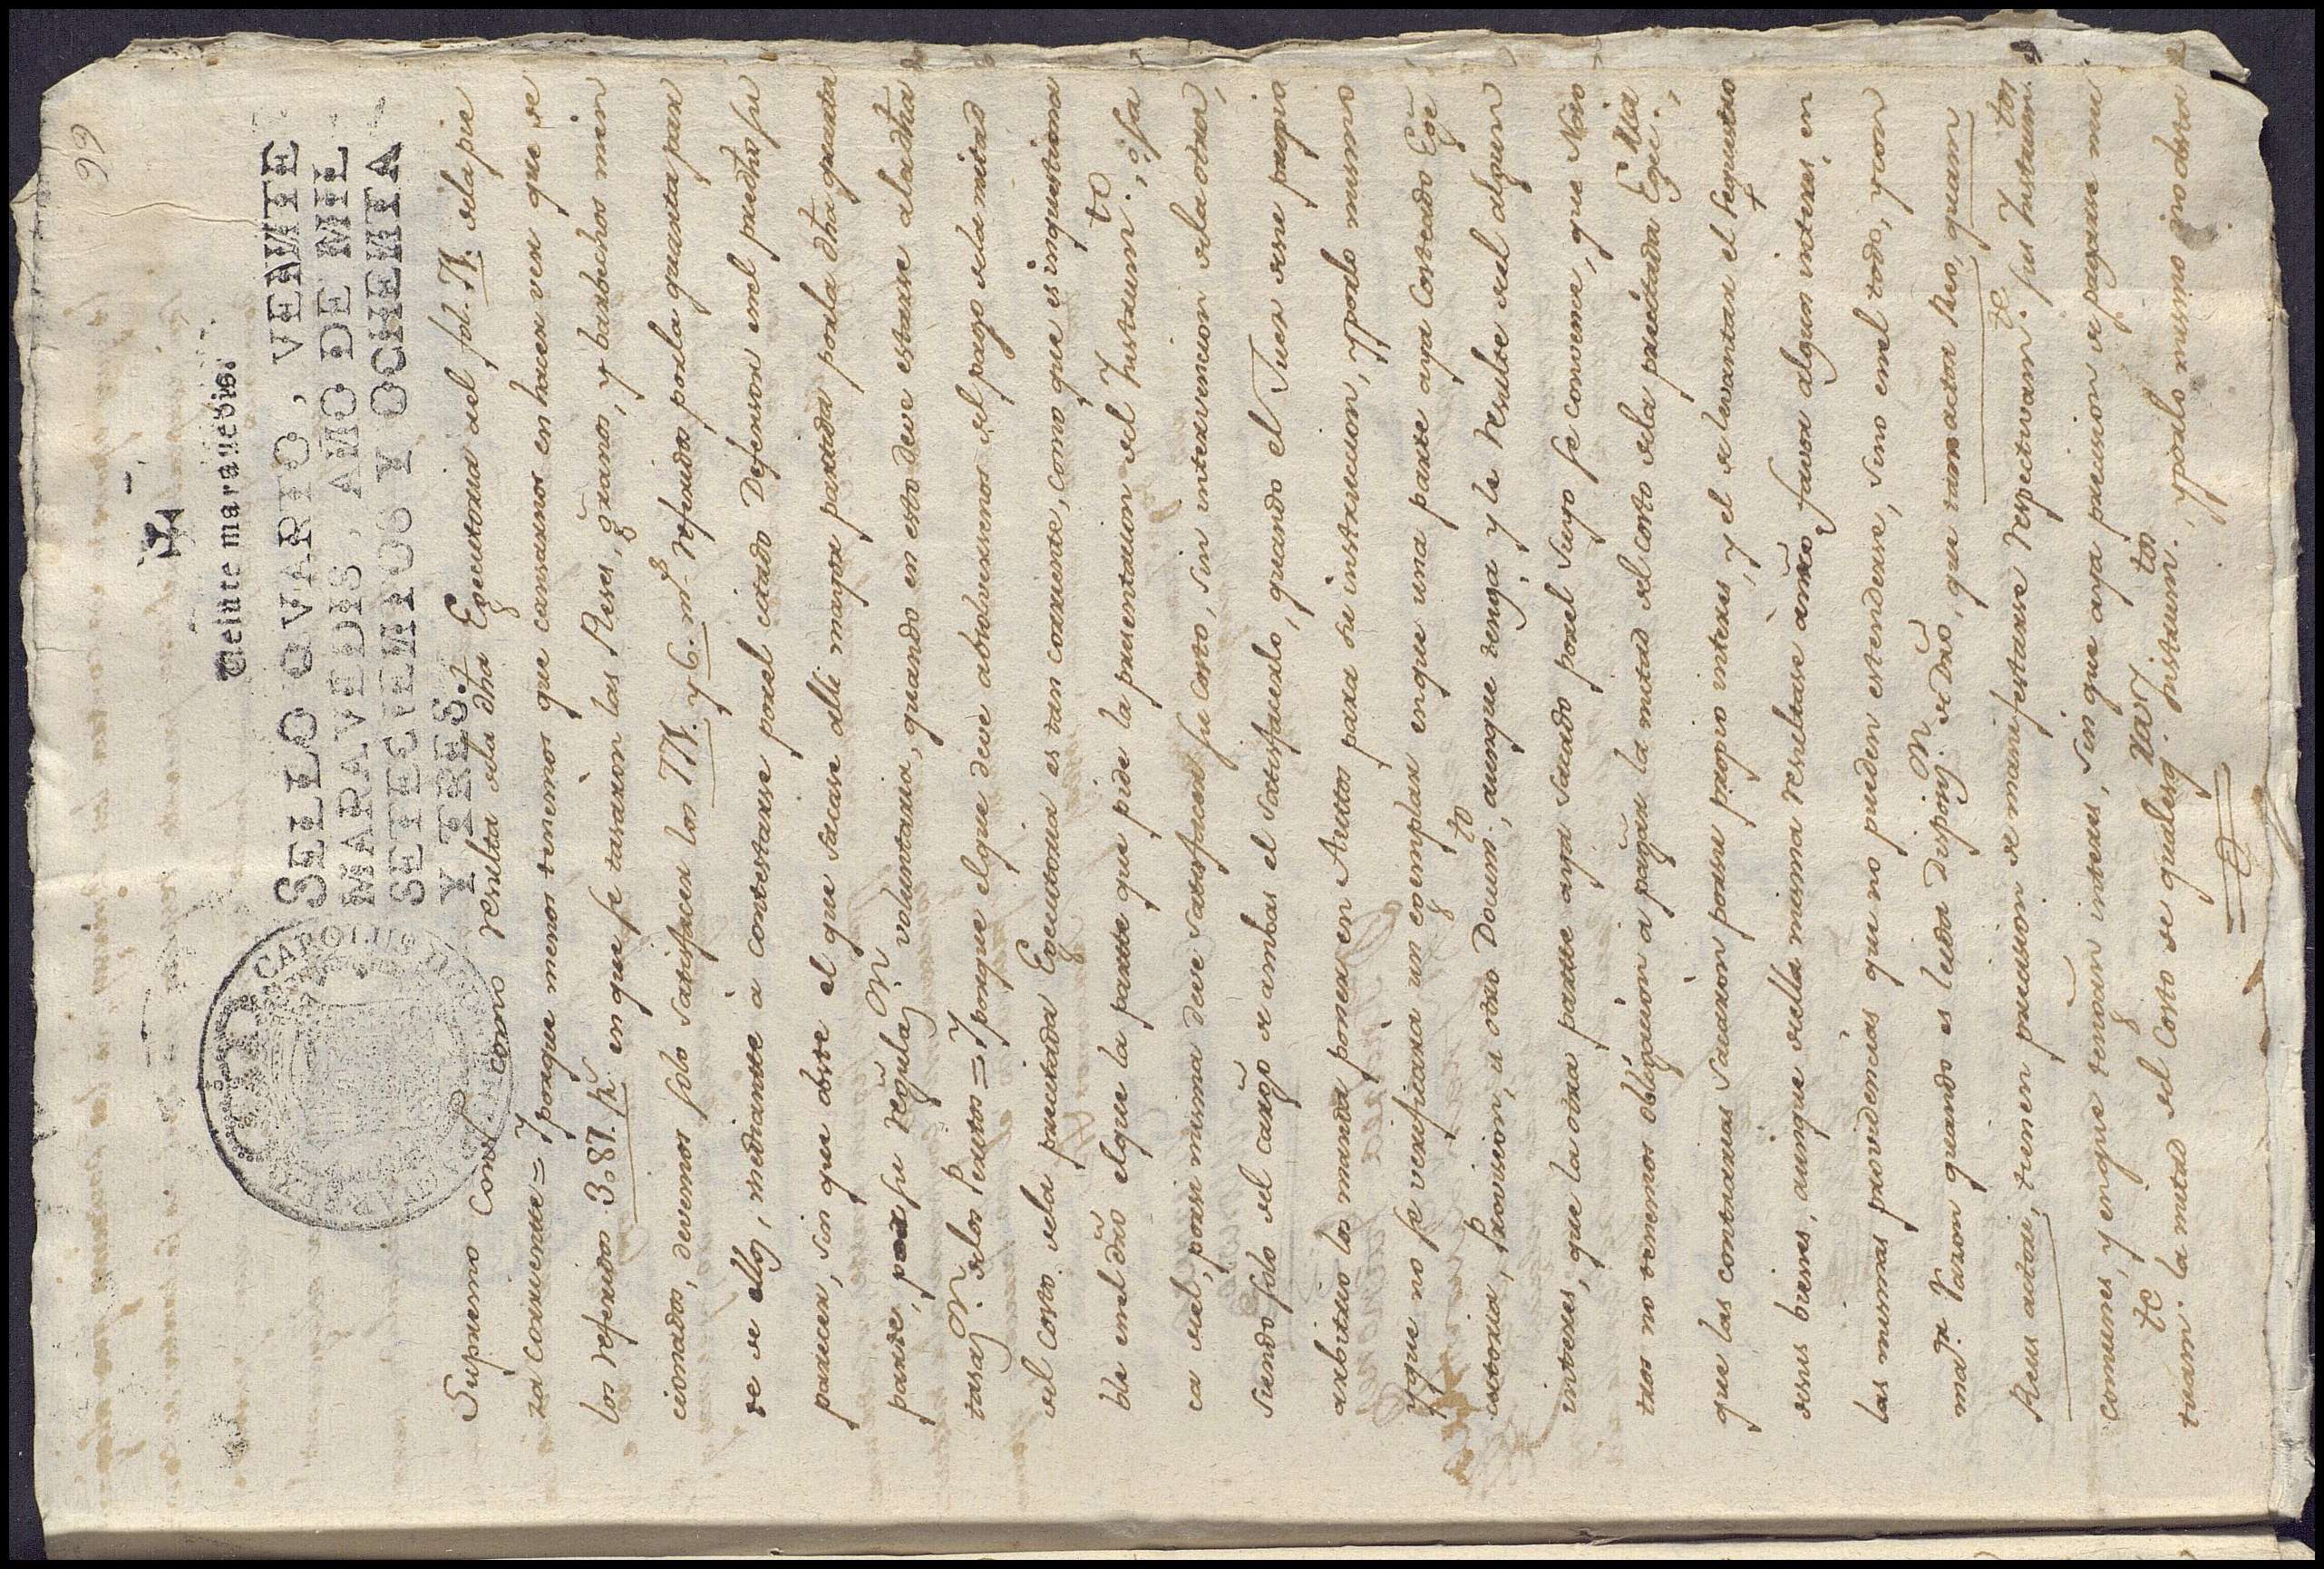 66
Veinte maravedis.
SELLO QVARTO, VEINTE
MARAVEDIS, AÑO DE MIL
SETECIENTOS Y OCHENTA
Y TRES.
CAROLUS III
Supremo Consº como resulta dela dhâ Egecutoria del fol. 71. dela pie
za corriente = Y porque menos tenemos que cansarnos en hacer ver que de
los referidos 3087. r.ˢ en que se tasaron las Reses, grãnos, y barbechos men
cionados, devemos solo satisfacer los 771. y 6. mrˢ. referidos por la quarta par
te de ellos, mediante à contestarse por el citado Defensor en el predhô su
parecer, sin que obste el que sacase alli mayor partida por la dhâ quarta
parte, por su Regulaȷ.ᵒⁿ voluntaria, quando en esto deve estarse ala dhâ
tasaȷ.ᵒⁿ delos Peritos = Y porque el que deve absolvernos del pago dela mitad
del costo dela precitada Egecutoria es tan corriente, como que es inquestiona
ble en el drõ el que la parte que pide la presentacion del Instrum.ᵗᵒ, ò sa
ca de el, por si misma deve satisfacer su costo, sin intervencion dela otra,
siendo solo del cargo de ambas el satisfacerlo, quando el Juez de su propio
arbitrio lo manda poner en Auttos para su instruccion, y por lo mismo
y que no se verificara un egemplar en que una parte aya costeado Ege
cutoria, Provision, u otro Docum.ᵗᵒ, aunque venga, y le resulte de el algun
interes, que la otra parte aya sacado por el suyo se convence, que Noso
tros no tenemos obligacion à pagar la mitad del costo dela precitada Egec.ʳⁱᵃ,
que las contrarias sacaron por su propio interes, y el de levantar el sequestro
desus bienes, aunque de ella misma resultase à nr̃o favor algun interes, en
las mismas providencias que no pueden estenderse, sino en el todo, y con
maȷ.ʳ razon quando es leda disposȷ.ᵒⁿ de Drõ, que tam actor Reo, quam
Reus actori, tienen precision de manifestarse respectivam.ᵗᵉ sus Instrum.ᵗᵒˢ
comunes, y en que tengan interes, sin que aya precision de pagarse mu
tuam.ᵗᵉ la mitad del costo de qualesqȷ.ʳᵃ Instrum.ᵗᵒˢ, y por lo mismo